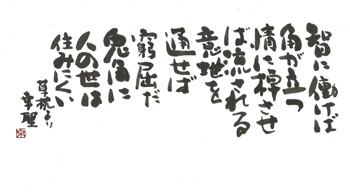 智に働けば
角が立つ
情に棹させ
ば流される
意地を
通せば
窮屈だ
兎角に
人の世は
住みにくい
草枕より
幸聖